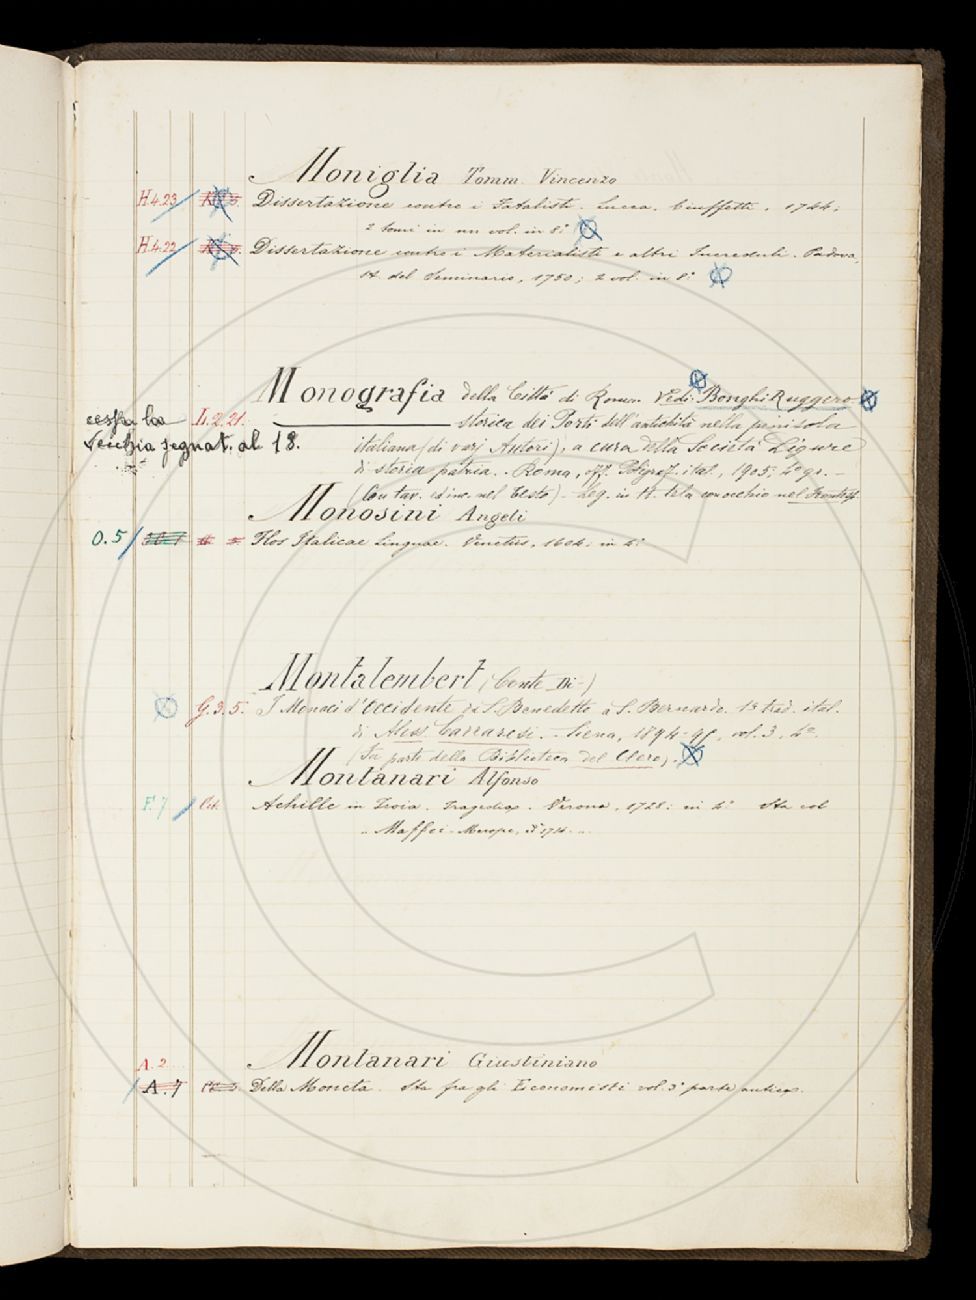 Moniglia Tomm. Vincenzo
H.4.23 Dissertazione contro i Fatalisti. Lucca. Ciuffetti, 1744;
2 tomi in un vol. in 8°
H.4.22 Dissertazione contro i Materialisti e altri Increduli. Padova,
St. del Seminario, 1750; 2 vol. in 8°
Monografia della Città di Roma. Vedi: Bonghi Ruggero
cessa la L.2.21. storica dei Porti dell'antichità nella penisola
vecchia segnat. al 18. italiana (di varj Autori), a cura della Società Ligure
di storia patria. - Roma, off. Poligraf. ital., 1905; 4° gr. -
(Con tav. ed inc. nel testo) - Leg. in ½ tela con occhio nel frontesp.
Monosini Angeli
O.5 Flos Italicae Linguae. Venetiis, 1604; in 4°
Montalembert (Conte Di-)
G.3.5. I Monaci d'Occidente da S. Benedetto a S. Bernardo. 1ª trad. ital.
di Aless. Carraresi. - Siena, 1894-9, vol. 3, 4°.
(Fa parte della Biblioteca del Clero).
Montanari Alfonso
F.7 Achille in Troia. Tragedia. Verona, 1728; in 4° Sta col
Maffei - Merope, di 1714.
Montanari Giustiniano
A.2
A.7 Della Moneta. Sta fra gli Economisti vol. 3° parte antica.